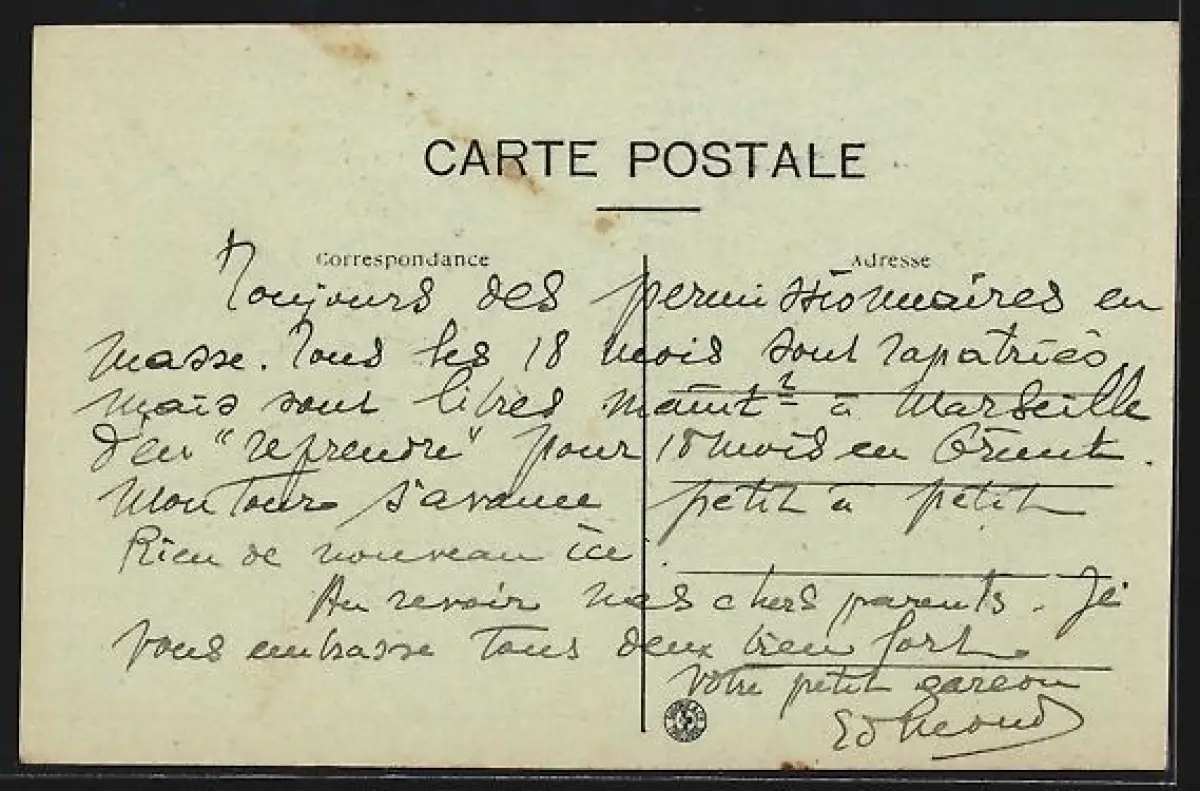 CARTE POSTALE
Correspondance
Adresse
Toujours des permissionnaires en
masse. Tous les 18 mois sont rapatriés
mais sont libres maint à Marseille
d'en "reprendre" pour 18 mois en Orient.
Mon tour s'avance petit à petit
Rien de nouveau ici.
Au revoir mes chers parents. Je
vous embrasse tous deux bien fort
Votre petit garçon